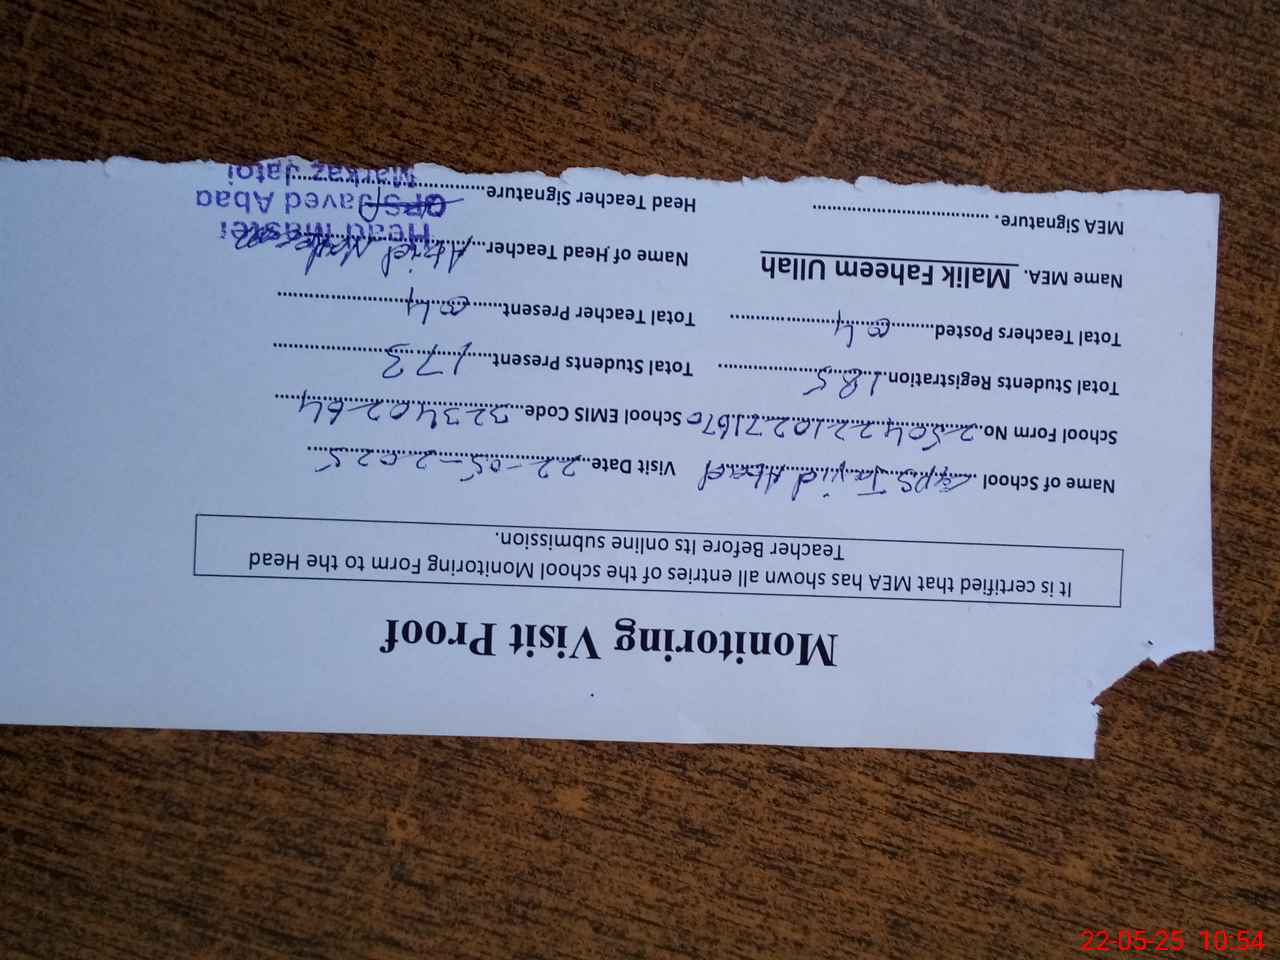 Monitoring Visit Proof
It is certified that MEA has shown all entries of the school Monitoring Form to the Head
Teacher Before Its online submission.
Name of School GPS Javid Abad Visit Date 22-05-2025
School Form No. School EMIS Code 32340264
Total Students Registration 185 Total Students Present 173
Total Teachers Posted 04 Total Teacher Present 04
Name MEA. Malik Faheem Ullah Name of Head Teacher
MEA Signature. Head Teacher Signature
Head Master
GPS Javed Abad
Markaz Jatoi
22-05-25 10:54